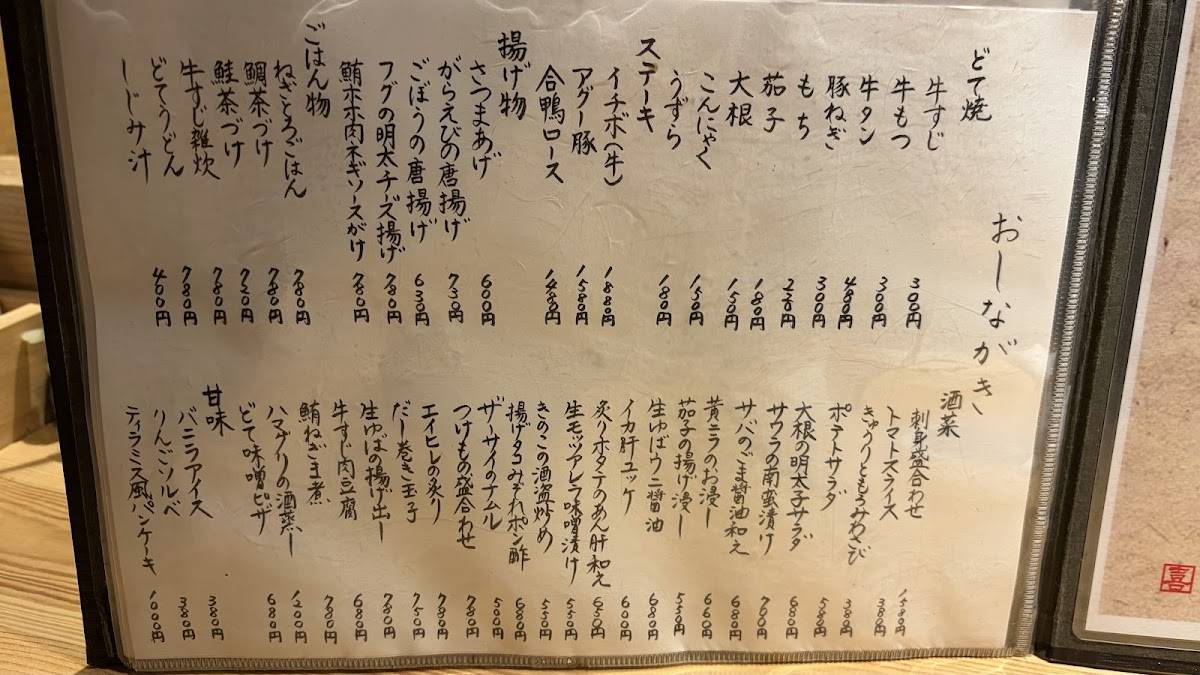 おしながき
どて焼
牛すじ 300円
牛もつ 300円
牛タン 480円
豚ねぎ 300円
もち 220円
茄子 180円
大根 150円
こんにゃく 150円
うずら 180円
ステーキ
イチボ(牛) 1880円
アグー豚 1580円
合鴨ロース 1480円
揚げ物
さつまあげ 600円
がらえびの唐揚げ 730円
ごぼうの唐揚げ 630円
フグの明太チーズ揚げ 780円
鮪ホホ肉ネギソースがけ 780円
ごはん物
ねぎとろごはん 780円
鯛茶づけ 780円
鮭茶づけ 720円
牛すじ雑炊 780円
どてうどん 780円
しじみ汁 400円
酒菜
刺身盛合わせ 1580円
トマトスライス 380円
きゅうりともろみわさび 380円
ポテトサラダ 580円
大根の明太子サラダ 680円
サワラの南蛮漬け 700円
サバのごま醤油和え 680円
黄ニラのお浸し 660円
茄子の揚げ浸し 550円
生ゆばウニ醤油 680円
イカ肝ユッケ 600円
炙りホタテのあん肝和え 650円
生モッツアレラ味噌漬け 550円
きのこの酒盗炒め 550円
揚げタコみぞれポン酢 680円
ザーサイのナムル 500円
つけもの盛合わせ 780円
エイヒレの炙り 780円
だし巻き玉子 750円
生ゆばの揚げ出し 780円
牛すじ肉豆腐 680円
鮪ねぎま煮 780円
ハマグリの酒蒸し 1200円
どて味噌ピザ 680円
甘味
バニラアイス 380円
りんごソルベ 380円
ティラミス風パンケーキ 1000円
喜